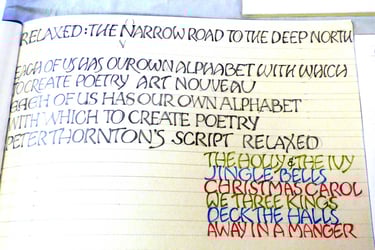 RELAXED: THE NARROW ROAD TO THE DEEP NORTH
EACH OF US HAS OUR OWN ALPHABET WITH WHICH
TO CREATE POETRY ART NOUVEAU
EACH OF US HAS OUR OWN ALPHABET
WITH WHICH TO CREATE POETRY
PETER THORNTON'S SCRIPT RELAXED
THE HOLLY & THE IVY
JINGLE BELLS
CHRISTMAS CAROL
WE THREE KINGS
DECK THE HALLS
AWAY IN A MANGER